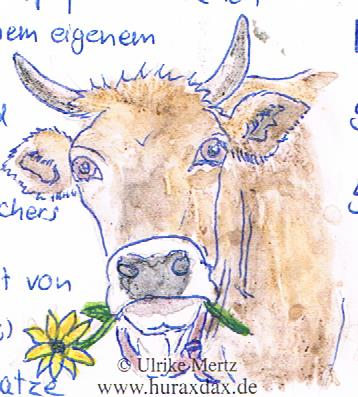 nem eigenem
chers
t von
atze
© Ulrike Mertz
www.huraxdax.de